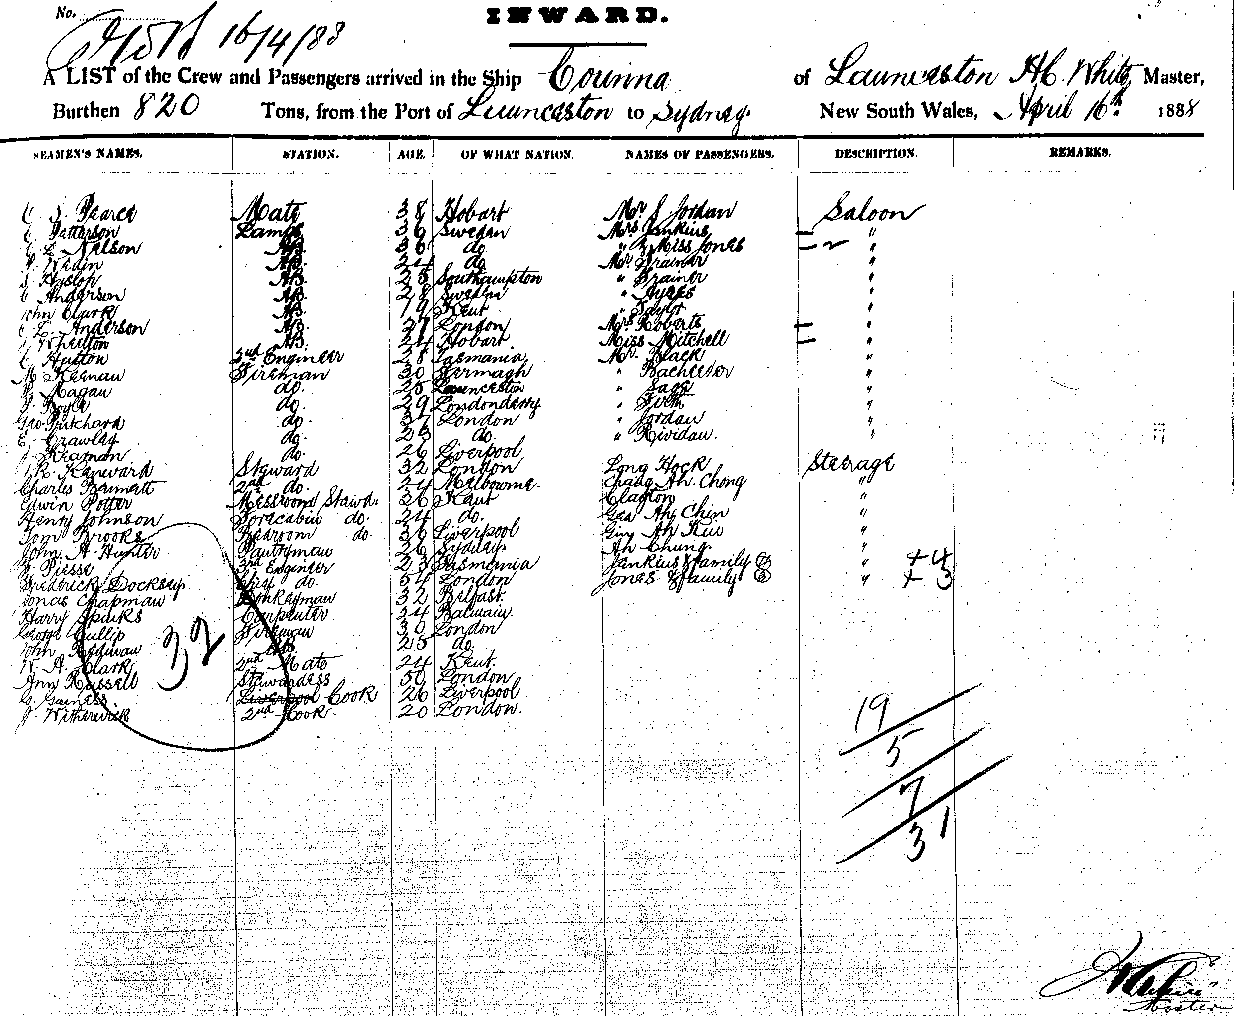 No.
16/4/88
INWARD.
A LIST of the Crew and Passengers arrived in the Ship Corinna of Launceston H. White, Master,
Burthen 820 Tons, from the Port of Launceston to Sydney New South Wales, April 16th 1888
SEAMEN'S NAMES. STATION. AGE. OF WHAT NATION. NAMES OF PASSENGERS. DESCRIPTION. REMARKS.
Pearce Mate 38 Hobart Mr J Jordan Saloon
Patterson Lamps 36 Sweden Mrs Jenkins "
Nelson AB. 36 do " & Miss Jones "
AB. 24 do Mr "
Hyslop AB. 25 Southampton " "
Anderson AB. 28 Sweden " Ayres "
John Clark AB. 19 Kent " Taylor "
Anderson AB. 27 London Mrs Roberts "
AB. 24 Hobart Miss Mitchell "
Hutton 2nd Engineer 28 Tasmania Mr. Black "
M Keenan Fireman 30 Fermagh " "
Magan do. 25 Launceston " Sage "
Boyle do. 29 Londonderry " Firth "
Geo Pritchard do. 37 London " Jordan "
E. Crawley do. 23 do. "
do. 26 Liverpool
Steward 32 London Long Hock Steerage
Charles 2nd do. 24 Melbourne Chang Ah Chong "
Edwin Potter Messroom Stawd. 26 Kent Clayton "
Henry Johnson Forecabin do. 24 do. Gea Ah Chin "
Tom Brooks Bedroom do. 36 Liverpool "
John A Hunter Pantryman 26 Sydney Ah Chung "
Piesse 3rd Engineer 23 Tasmania Jenkins & family " +4
Frederick Docksey Chief do. 54 London Jones & family " +3
Jonas Chapman Donkeyman 32 Belfast
Harry Spinks Carpenter 34 Balmain
George Cullip Fireman 30 London
John AB. 25 do.
W. A. Clark 2nd Mate 24 Kent.
Ann Russell Stewardess 50 London
Liverpool Cook 26 Liverpool
J Witherwick 2nd Cook 20 London.
32
19
5
7
31
Master